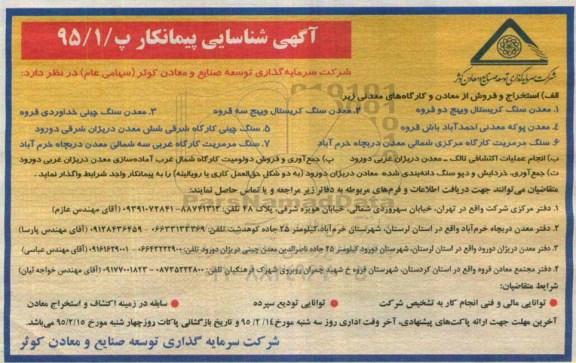 آگهی شناسایی پیمانکار پ/۹۵/۱
شرکت سرمایه‌گذاری توسعه صنایع و معادن کوثر
شرکت سرمایه‌گذاری توسعه صنایع و معادن کوثر (سهامی عام) در نظر دارد:
الف) استخراج و فروش از معادن و کارگاه‌های معدنی زیر
۱. معدن سنگ کریستال وینج دو قروه ۲. معدن سنگ کریستال وینج سه قروه ۳. معدن سنگ چینی خداوردی قروه
۴. معدن پوکه معدنی احمدآباد باش قروه ۵. سنگ چینی کارگاه شرقی شش معدن دریژان شرقی دورود
۶. سنگ مرمریت کارگاه مرکزی شمالی معدن دریچاه خرم آباد ۷. سنگ مرمریت کارگاه غربی سه شمالی معدن دریچاه خرم آباد
ب) انجام عملیات اکتشافی تالک ـ معدن دریژان غربی دورود پ) جمع‌آوری و فروش دولومیت کارگاه شمال غرب آماده‌سازی معدن دریژان غربی دورود
ت) جمع‌آوری، خردایش و دپو سنگ دانه‌بندی شده معادن دریژان دورود (به دو شکل حق‌العمل کاری یا رویالیته) را به پیمانکار واجد شرایط واگذار نماید.
متقاضیان می‌توانند جهت دریافت اطلاعات و فرم‌های مربوطه به دفاتر زیر مراجعه و یا تماس حاصل نمایند:
۱. دفتر مرکزی شرکت واقع در تهران، خیابان سهروردی شمالی، خیابان هویزه شرقی، پلاک ۴۸ تلفن: ۸۸۷۴۱۳۱۲ - ۰۹۳۹۱۰۷۲۸۴۱ (آقای مهندس عازم)
۲. دفتر معدن دریچاه خرم‌آباد واقع در استان لرستان، شهرستان خرم‌آباد کیلومتر ۲۵ جاده کوهدشت تلفن: ۰۶۶۳۳۱۳۳۳۶۹ - ۰۹۱۲۸۴۳۶۴۵۹ (آقای مهندس پارسا)
۳. دفتر معدن دریژان دورود واقع در استان لرستان، شهرستان دورود کیلومتر ۲۵ جاده ناصرالدین معدن چینی دریژان دورود تلفن: ۰۶۶۴۳۲۲۲۹۰۰ - ۰۹۱۶۱۶۲۹۰۰۱ (آقای مهندس عباسی)
۴. دفتر مجتمع معادن قروه واقع در استان کردستان، شهرستان قروه خ شهید چمران روبروی شهرک فرهنگیان تلفن: ۰۸۷۳۵۲۲۲۸۰۰ - ۰۹۱۷۷۰۰۱۸۲۲ (آقای مهندس خواجه لیان)
شرایط متقاضیان:
توانایی مالی و فنی انجام کار به تشخیص شرکت توانایی تودیع سپرده سابقه در زمینه اکتشاف و استخراج معادن
آخرین مهلت جهت ارائه پاکت‌های پیشنهادی، آخر وقت اداری روز سه شنبه مورخ ۹۵/۲/۱۴ و تاریخ بازگشائی پاکات روز چهارشنبه مورخ ۹۵/۲/۱۵ می‌باشد.
شرکت سرمایه گذاری توسعه صنایع و معادن کوثر
ParsNamadData